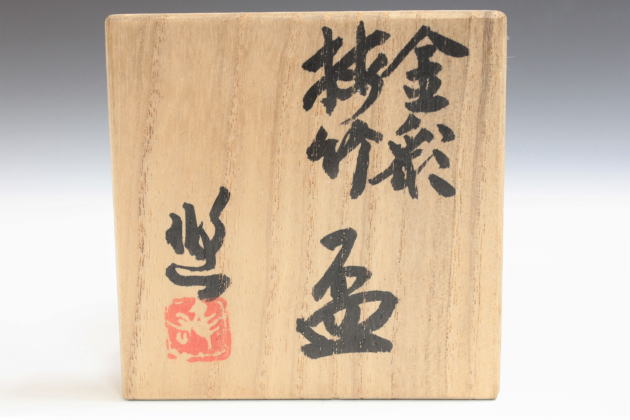 金彩
梅竹
盃